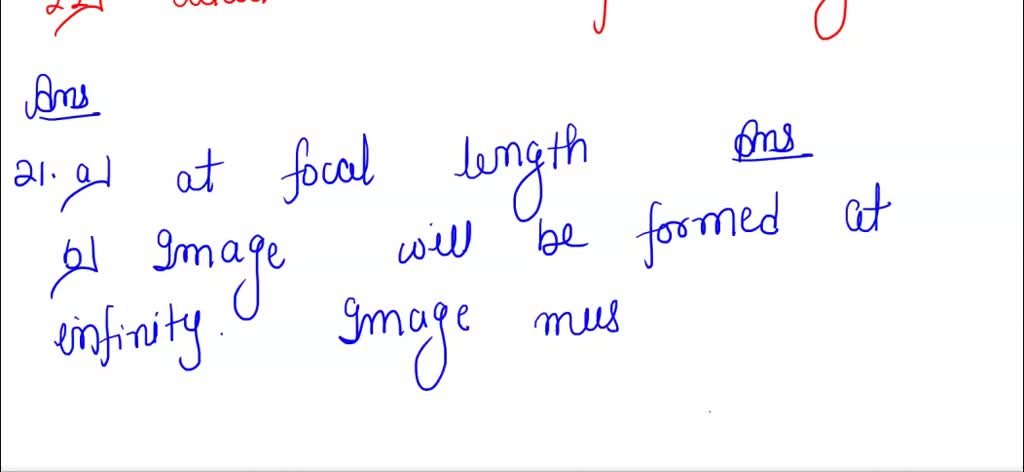 Ans
21. a) at focal length Ans
b) Image will be formed at
infinity. Image mus